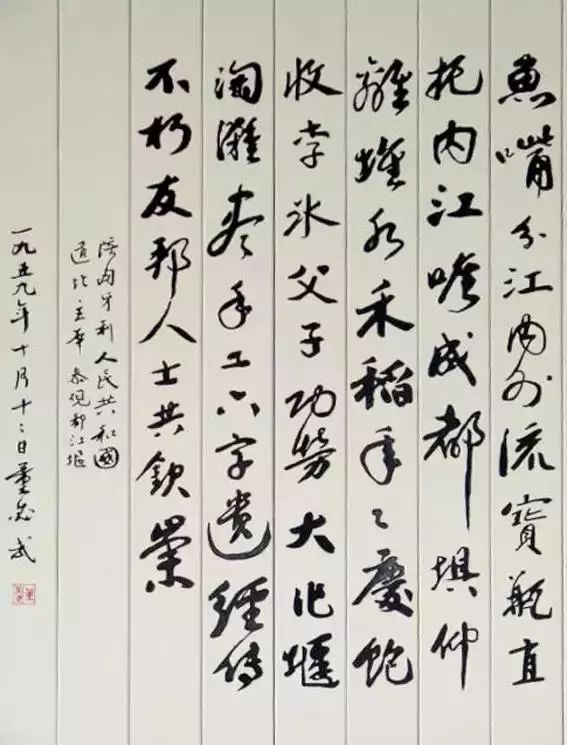 魚嘴分江内外流寶瓶直
扼内江喉成都埧仰
離堆水禾稻年々慶飽
收李冰父子功勞大作堰
淘灘盡手工六字遺經傳
不朽友邦人士共欽崇
陪匈牙利人民共和國
道比主席參观都江堰
一九五九年十月十二日董必武